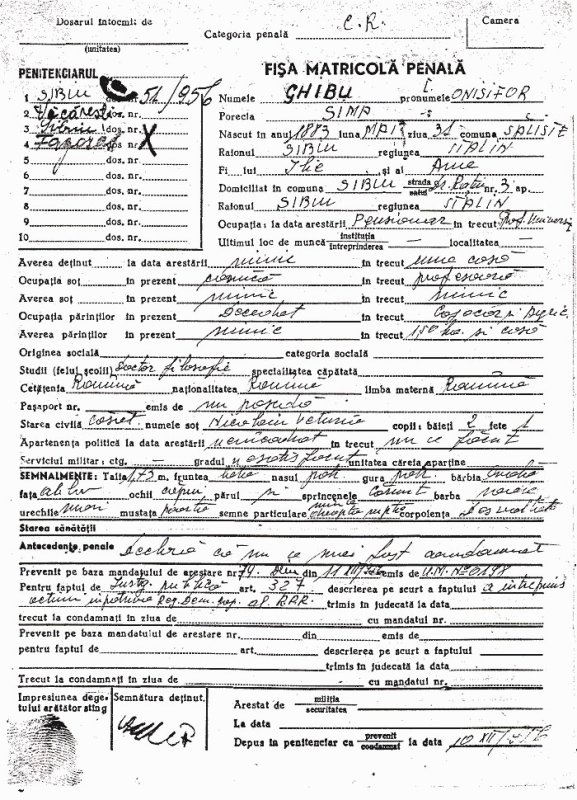 Dosarul întocmit de
(unitatea)
Categoria penală C.R.
Camera
PENITENCIARUL
FIȘA MATRICOLĂ PENALĂ
1 SIBIU dos. nr. 51/956
2 Văcărești dos. nr.
3 dos. nr.
4 dos. nr. X
5 dos. nr.
6 dos. nr.
7 dos. nr.
8 dos. nr.
9 dos. nr.
10 dos. nr.
Numele GHIBU pronumele ONISIFOR
Porecla SIMA
Născut în anul 1883 luna MAI ziua 31 comuna SALISTE
Raionul SIBIU regiunea STALIN
Fi lui Ilie și al Ana
Domiciliat în comuna SIBIU strada satul nr. 3 ap.
Raionul SIBIU regiunea STALIN
Ocupația: la data arestării Pensionar în trecut Prof. Univers
Ultimul loc de muncă instituția întreprinderea — localitatea —
Averea deținut la data arestării nimic în trecut una casă
Ocupația soț în prezent casnică în trecut profesoară
Averea soț în prezent nimic în trecut nimic
Ocupația părinților în prezent Decedat în trecut
Averea părinților în prezent nimic în trecut 1,50 ha. și casă
Originea socială categoria socială
Studii (felul școlii) Doctor filosofie specialitatea căpătată
Cetățenia Română naționalitatea Română limba maternă Română
Pașaport nr. emis de nu posedă
Starea civilă căsat. numele soț Nicolau Veturia copii: băieți 2 fete 1
Apartenența politică la data arestării neîncadrat în trecut nu a făcut
Serviciul militar: ctg. — gradul unitatea căreia aparține
SEMNALMENTE: Talia 1,73 m. fruntea nasul potr. gura potr. bărbia ovală
fața ochii căprui părul sprîncenele barba
urechile mustața semne particulare corpolența
Starea sănătății
Antecedente penale declară că nu a mai fost condamnat
Prevenit pe baza mandatului de arestare nr. 79 din 11 XII emis de U.M. No 0198
Pentru faptul de art. 327 descrierea pe scurt a faptului a întreprins
acțiuni împotriva Reg. Dem. pop. al R.P.R. trimis în judecată la data
trecut la condamnați în ziua de cu mandatul nr.
Prevenit pe baza mandatului de arestare nr. din emis de
pentru faptul de art. descrierea pe scurt a faptului
trimis în judecată la data
Trecut la condamnați în ziua de cu mandatul nr.
Impresiunea degetului arătător stîng
Semnătura deținut.
Arestat de miliția securitatea
La data
Depus în penitenciar ca prevenit condamnat la data 10 XII